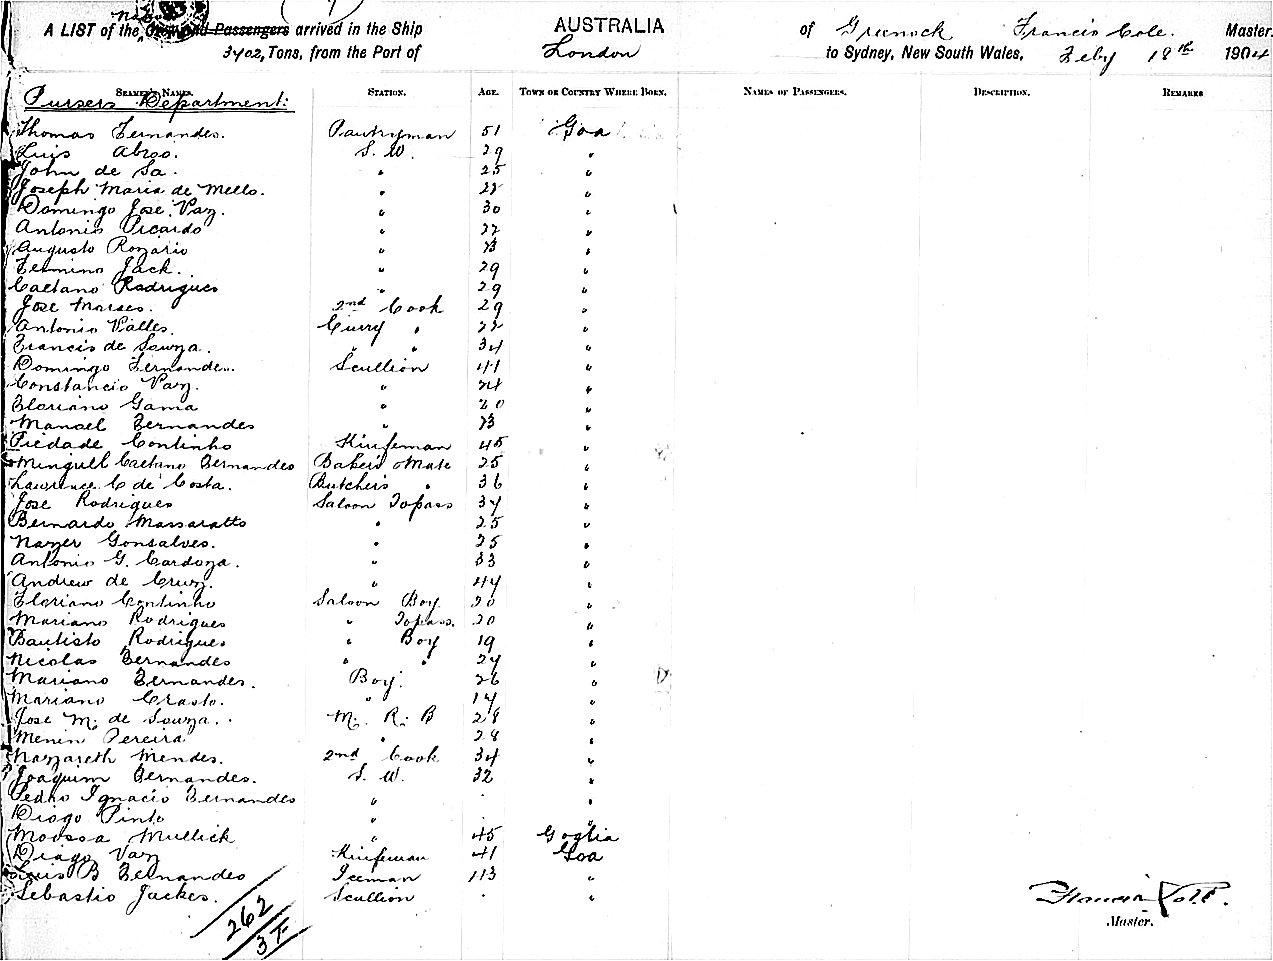 A LIST of the Crew and Passengers arrived in the Ship AUSTRALIA of Greenock Francis Cole. Master.
3402, Tons, from the Port of London to Sydney, New South Wales, Feby 18th 1904
SEAMEN'S NAMES. STATION. AGE. TOWN OR COUNTRY WHERE BORN. NAMES OF PASSENGERS. DESCRIPTION. REMARKS
Pursers Department:
Thomas Fernandes. Pantryman 51 Goa
Luis Abreo. S. W. 29 "
John de Sa. " 25 "
Joseph Maria de Mello. " "
Domingo Jose Vaz. " 30 "
Antonio Picardo " 22 "
Augusto Rozario " "
Fermino Jack. " 29 "
Caetano Rodrigues " 29 "
Jose 2nd Cook 29 "
Antonio Valles. Curry " 22 "
Francis de Souza. " " 34 "
Domingo Fernandes. Scullion 41 "
Constancio Vaz. " 24 "
Floriano Gama " 20 "
Manoel Fernandes " "
Piedade Continho 45 "
Minguel Caetano Fernandes Bakers Mate 25 "
Lawrence C de Costa. Butchers " 36 "
Jose Rodrigues Saloon Topass 34 "
Bernardo Massaratto " 25 "
Gonsalves. " 25 "
Antonio G. Cardoza. " 33 "
Andrew de Cruz. " 44 "
Floriano Continho Saloon Boy 20 "
Mariano Rodrigues " Topass. 20 "
Bautisto Rodrigues " Boy 19 "
Nicolas Fernandes " " 24 "
Mariano Fernandes. Boy. 26 "
Mariano Crasto. " 14 "
Jose M. de Souza. M. R. B 28 "
Menin Pereira " 28 "
Nazareth Mendes. 2nd Cook 34 "
Joaquim Fernandes. S. W. 32 "
Pedro Ignacio Fernandes " "
Diogo Pinto " "
Moossa Mullick " 45 Goglia
Diago Vaz 41 Goa
Luis B Fernandes Iceman "
Sebastio Jackes. Scullion "
262
Francis Cole.
Master.